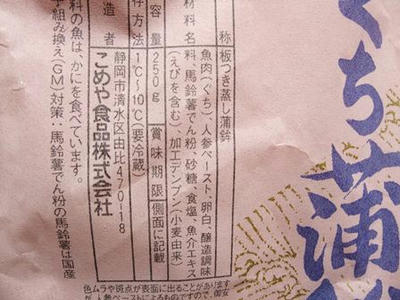 ぐち蒲鉾
称 板つき蒸し蒲鉾
材料 魚肉(ぐち)、人参ペースト、卵白、醸造調味
料、馬鈴薯でん粉、砂糖、食塩、魚介エキス
(えびを含む)、加工デンプン(小麦由来)
容量 250g 賞味期限 側面に記載
存方法 1℃〜10℃(要冷蔵)
造者 静岡市清水区由比470-18
こめや食品株式会社
料の魚は、かにを食べています。
組み換え(GM)対策:馬鈴薯でん粉の馬鈴薯は国産
色ムラや斑点が表面に出ることがあります